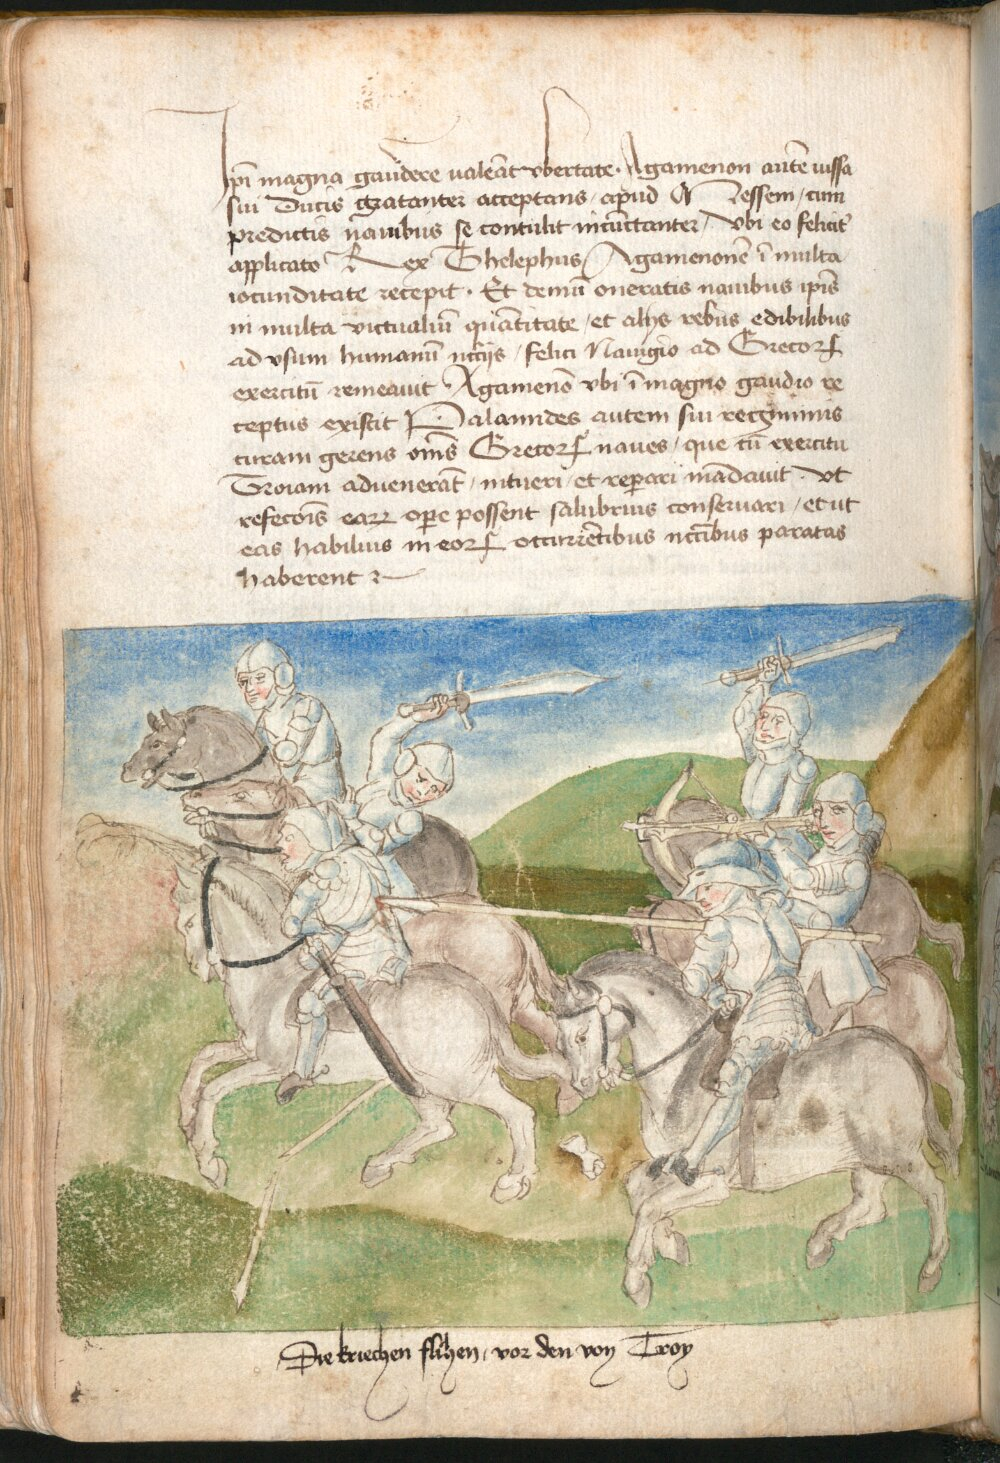 ip̄i magna gaudere valeāt vbertate. Agamenon autē iussa
sui Ducis gratanter acceptans, apud Messem, cum
predictis nauibus se contulit incūctanter, Vbi eo felicit᷑
applicato Rex Thelephus, Agamenonē ī multa
iocunditate recepit. Et demū oneratis nauibus ip̄is
in multa victualiū quātitate, et alijs rebus edibilibus
ad vsum humanū nc̄cijs, felici Nauigio ad Grecoꝝ
exercitū remeauit Agamenō vbi ī magno gaudio re
ceptus existit Palamides autem sui regiminis
curam gerens om̄s Grecoꝝ naues, que cū exercitu
Troiam aduenerāt, intueri, et reperari mādauit. vt
refecc̄ois earꝝ ope possent salubrius conseruari, et ut
eas habilius in eoꝝ occurrētibus nc̄cibus paratas
haberent
Die kriechen flihen, vor den von Troy